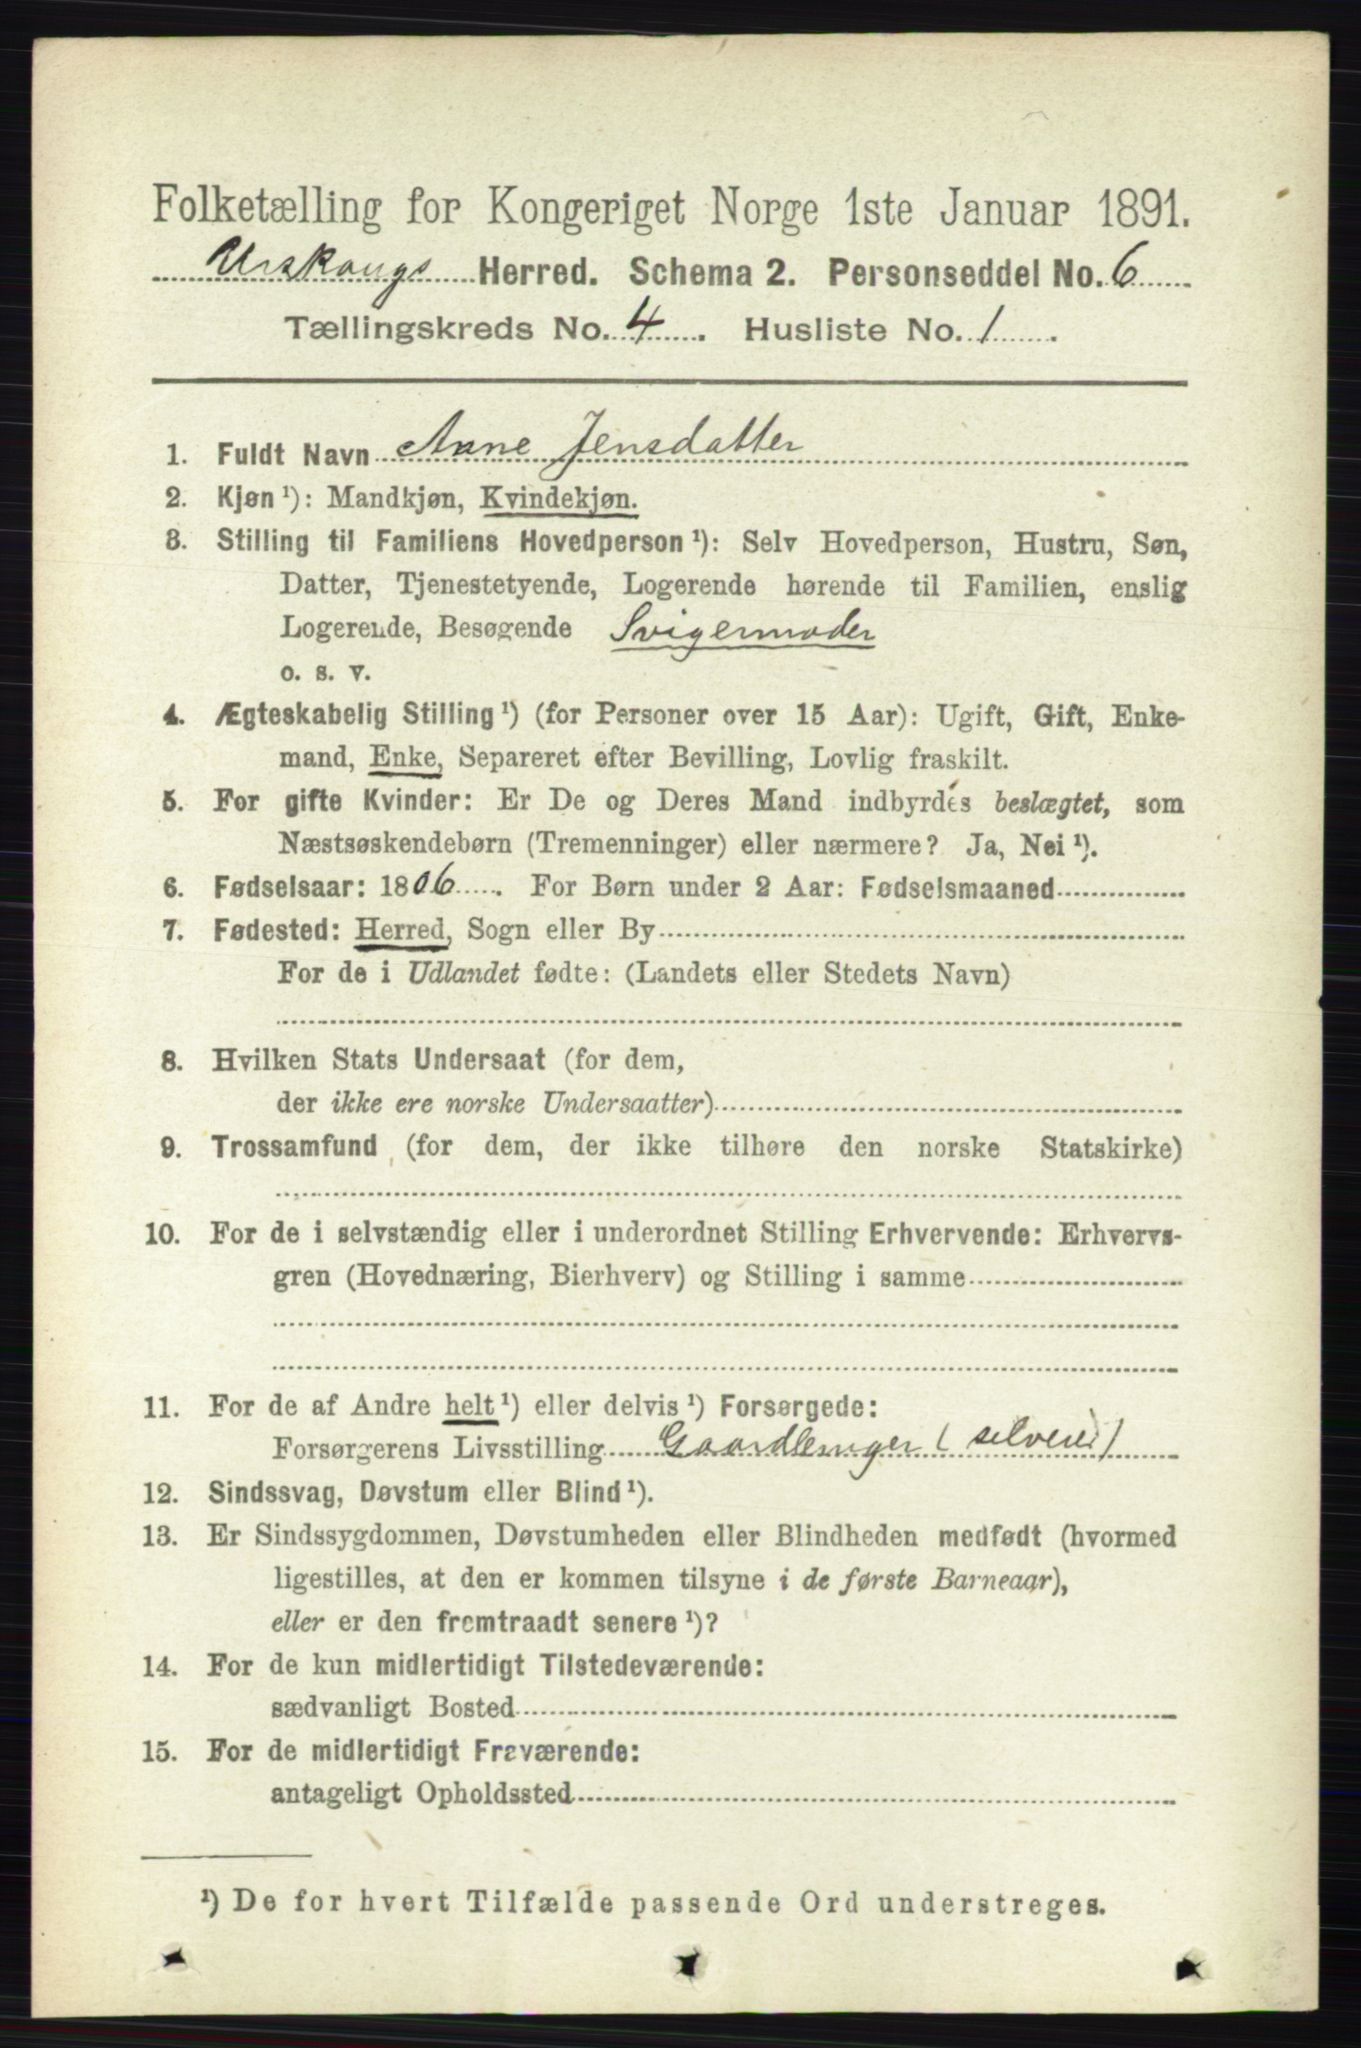 Folketælling for Kongeriget Norge 1ste Januar 1891.
Urskougs Herred. Schema 2. Personseddel No. 6
Tællingskreds No. 4. Husliste No. 1.
1. Fuldt Navn Anne Jensdatter
2. Kjøn ¹): Mandkjøn, Kvindekjøn.
3. Stilling til Familiens Hovedperson ¹): Selv Hovedperson, Hustru, Søn,
Datter, Tjenestetyende, Logerende hørende til Familien, enslig
Logerende, Besøgende Svigermoder
o. s. v.
4. Ægteskabelig Stilling ¹) (for Personer over 15 Aar): Ugift, Gift, Enke-
mand, Enke, Separeret efter Bevilling, Lovlig fraskilt.
5. For gifte Kvinder: Er De og Deres Mand indbyrdes beslægtet, som
Næstsøskendebørn (Tremenninger) eller nærmere? Ja, Nei ¹).
6. Fødselsaar: 1806. For Børn under 2 Aar: Fødselsmaaned
7. Fødested: Herred, Sogn eller By
For de i Udlandet fødte: (Landets eller Stedets Navn)
8. Hvilken Stats Undersaat (for dem,
der ikke ere norske Undersaatter)
9. Trossamfund (for dem, der ikke tilhøre den norske Statskirke)
10. For de i selvstændig eller i underordnet Stilling Erhvervende: Erhvervs-
gren (Hovednæring, Bierhverv) og Stilling i samme
11. For de af Andre helt ¹) eller delvis ¹) Forsørgede:
Forsørgerens Livsstilling Gaardbruger (selveier)
12. Sindssvag, Døvstum eller Blind ¹).
13. Er Sindssygdommen, Døvstumheden eller Blindheden medfødt (hvormed
ligestilles, at den er kommen tilsyne i de første Barneaar),
eller er den fremtraadt senere ¹)?
14. For de kun midlertidigt Tilstedeværende:
sædvanligt Bosted
15. For de midlertidigt Fraværende:
antageligt Opholdssted
¹) De for hvert Tilfælde passende Ord understreges.